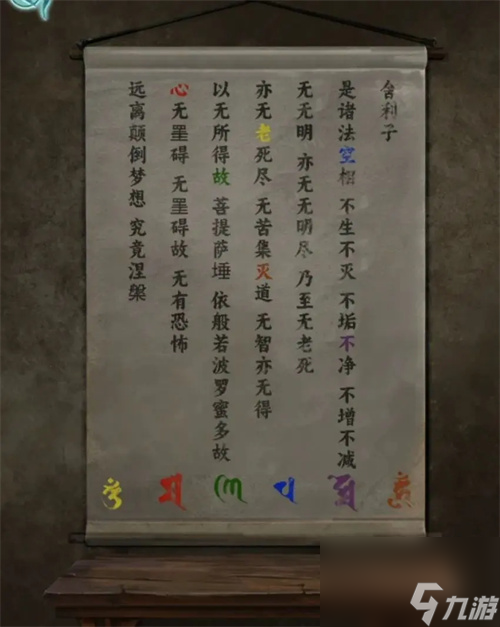 舍利子
是诸法空相 不生不灭 不垢不净 不增不减
无无明 亦无无明尽 乃至无老死
亦无老死尽 无苦集灭道 无智亦无得
以无所得故 菩提萨埵 依般若波罗蜜多故
心无罣碍 无罣碍故 无有恐怖
远离颠倒梦想 究竟涅槃
九游